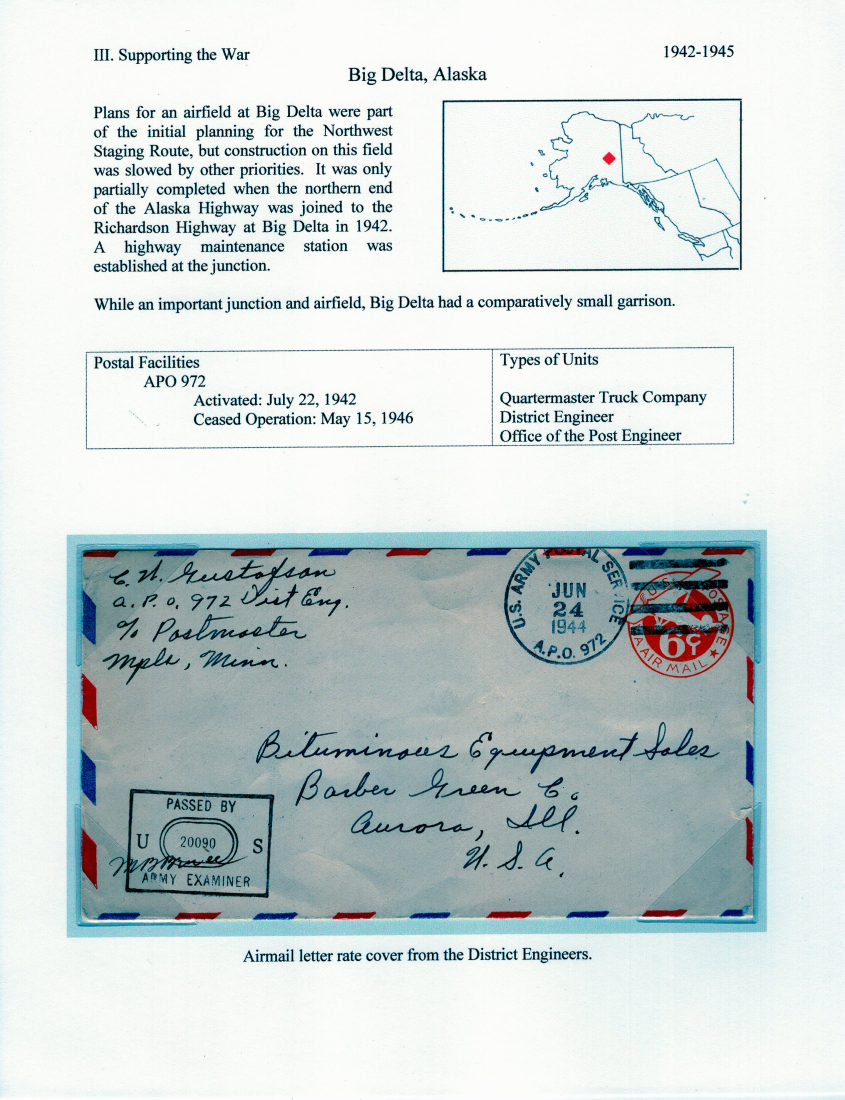 III. Supporting the War
1942-1945
Big Delta, Alaska
Plans for an airfield at Big Delta were part
of the initial planning for the Northwest
Staging Route, but construction on this field
was slowed by other priorities. It was only
partially completed when the northern end
of the Alaska Highway was joined to the
Richardson Highway at Big Delta in 1942.
A highway maintenance station was
established at the junction.
While an important junction and airfield, Big Delta had a comparatively small garrison.
Postal Facilities
APO 972
Activated: July 22, 1942
Ceased Operation: May 15, 1946
Types of Units
Quartermaster Truck Company
District Engineer
Office of the Post Engineer
Gustafson
a.P.o. 972 Dist Eng.
% Postmaster
Mpls, Minn.
U.S. ARMY POSTAL SERVICE
JUN
24
1944
A.P.O. 972
U.S. POSTAGE
6¢
AIR MAIL
Bituminous Equipment Sales
Barber Green C.
Aurora, Ill.
U.S.A.
PASSED BY
U 20090 S
ARMY EXAMINER
Airmail letter rate cover from the District Engineers.